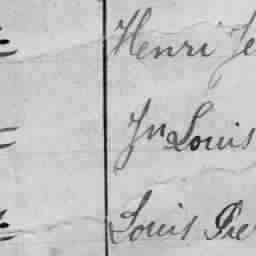 Henri Je
Jn Louis
Louis Pie